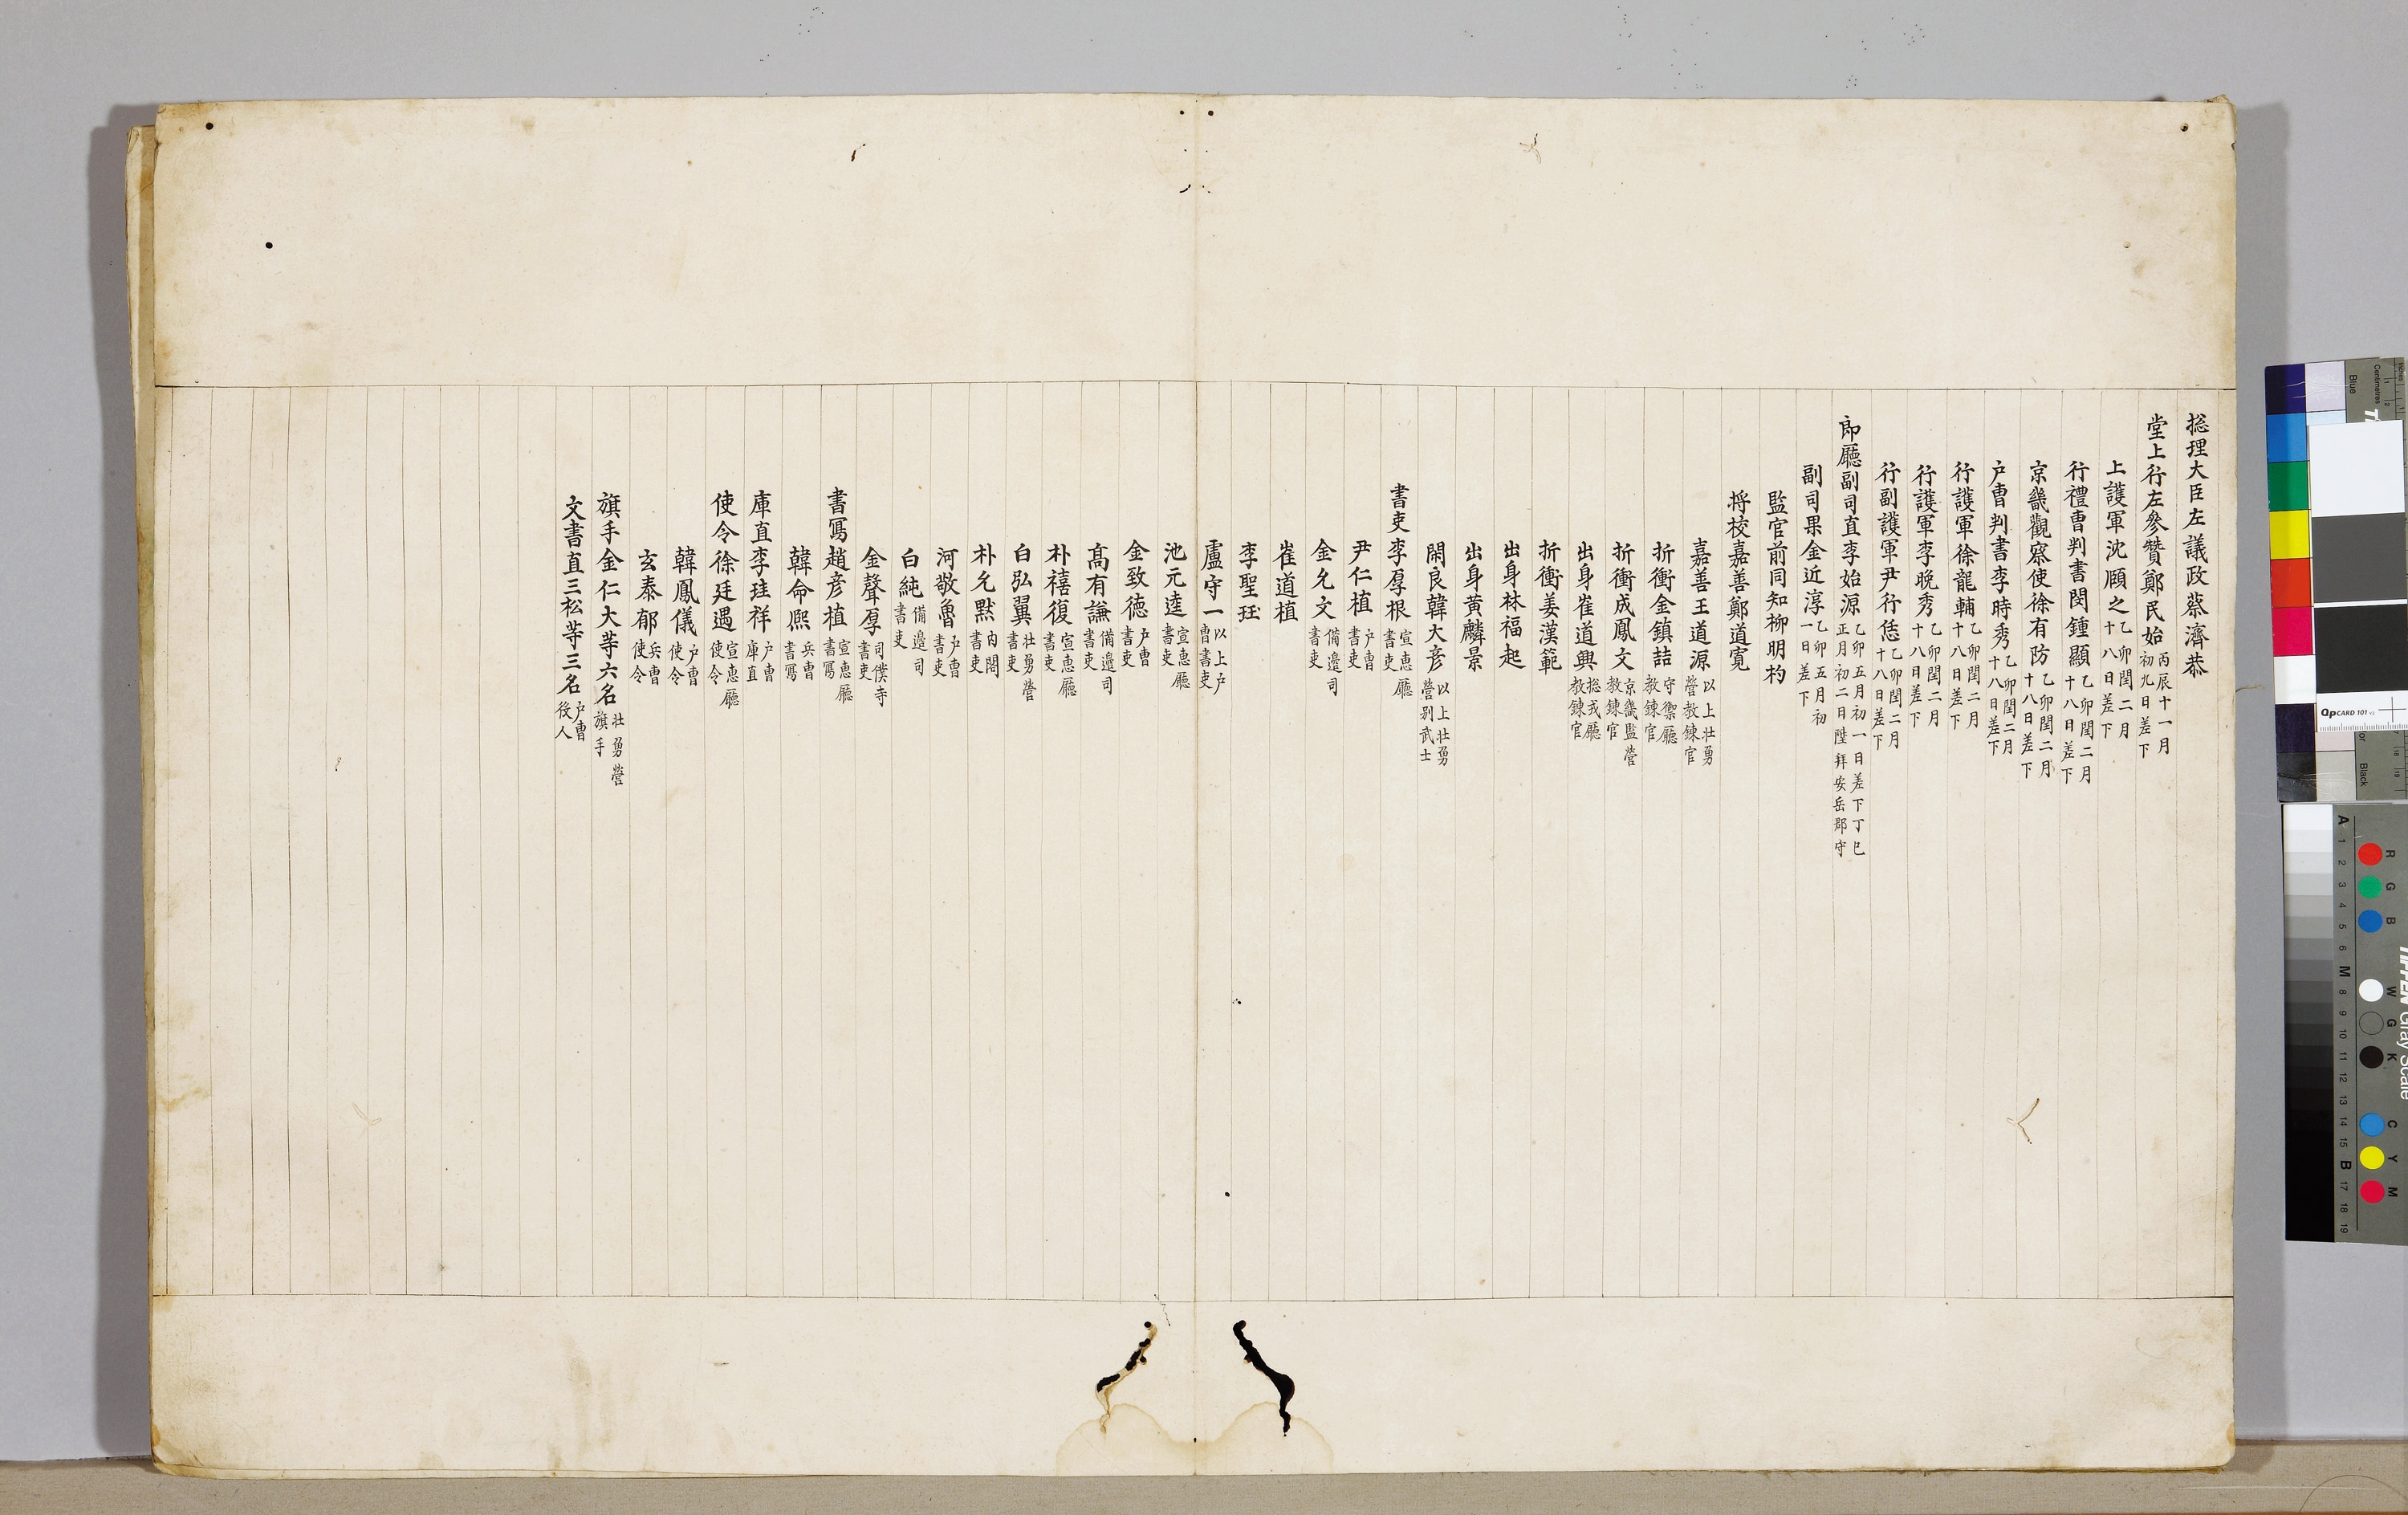 捴理大臣左議政蔡濟恭
堂上行左參贊鄭民始 丙辰十一月初九日差下
上護軍沈頤之 乙卯閏二月十八日差下
行禮曹判書閔鍾顯 乙卯閏二月十八日差下
京畿觀察使徐有防 乙卯閏二月十八日差下
户曹判書李時秀 乙卯閏二月十八日差下
行護軍徐龍輔 乙卯閏二月十八日差下
行護軍李晚秀 乙卯閏二月十八日差下
行副護軍尹行恁 乙卯閏二月十八日差下
郎廳副司直李始源 乙卯五月初一日差下丁巳正月初二日陞拜安岳郡守
副司果金近淳 乙卯五月初一日差下
監官前同知柳明杓
將校嘉善鄭道寬
嘉善王道源 以上壯勇營教鍊官
折衝金鎮喆 守禦廳教鍊官
折衝成鳳文 京畿監營教鍊官
出身崔道興 捴戎廳教鍊官
折衝姜漢範
出身林福起
出身黃麟景
閑良韓大彦 以上壯勇營别武士
書吏李厚根 宣惠廳書吏
尹仁植 户曹書吏
金允文 備邊司書吏
崔道植
李聖珏
盧守一 以上户曹書吏
池元逵 宣惠廳書吏
金致德 户曹書吏
髙有謙 備邊司書吏
朴禧復 宣惠廳書吏
白弘翼 壯勇營書吏
朴允默 內閣書吏
河敬魯 户曹書吏
白純 備邊司書吏
金聲厚 司僕寺書吏
書寫趙彦植 宣惠廳書寫
韓命熙 兵曹書寫
庫直李珪祥 户曹庫直
使令徐廷遇 宣惠廳使令
韓鳳儀 户曹使令
玄泰郁 兵曹使令
旗手金仁大等六名 壯勇營旗手
文書直三松等三名 户曹役人
QpCARD 101
Blue
Black
Centimetres
A 1 2 3 4 5 6 M 8 9 10 11 12 13 14 15 B 17 18 19
R G B W G K C Y M
TIFFEN Gray Scale